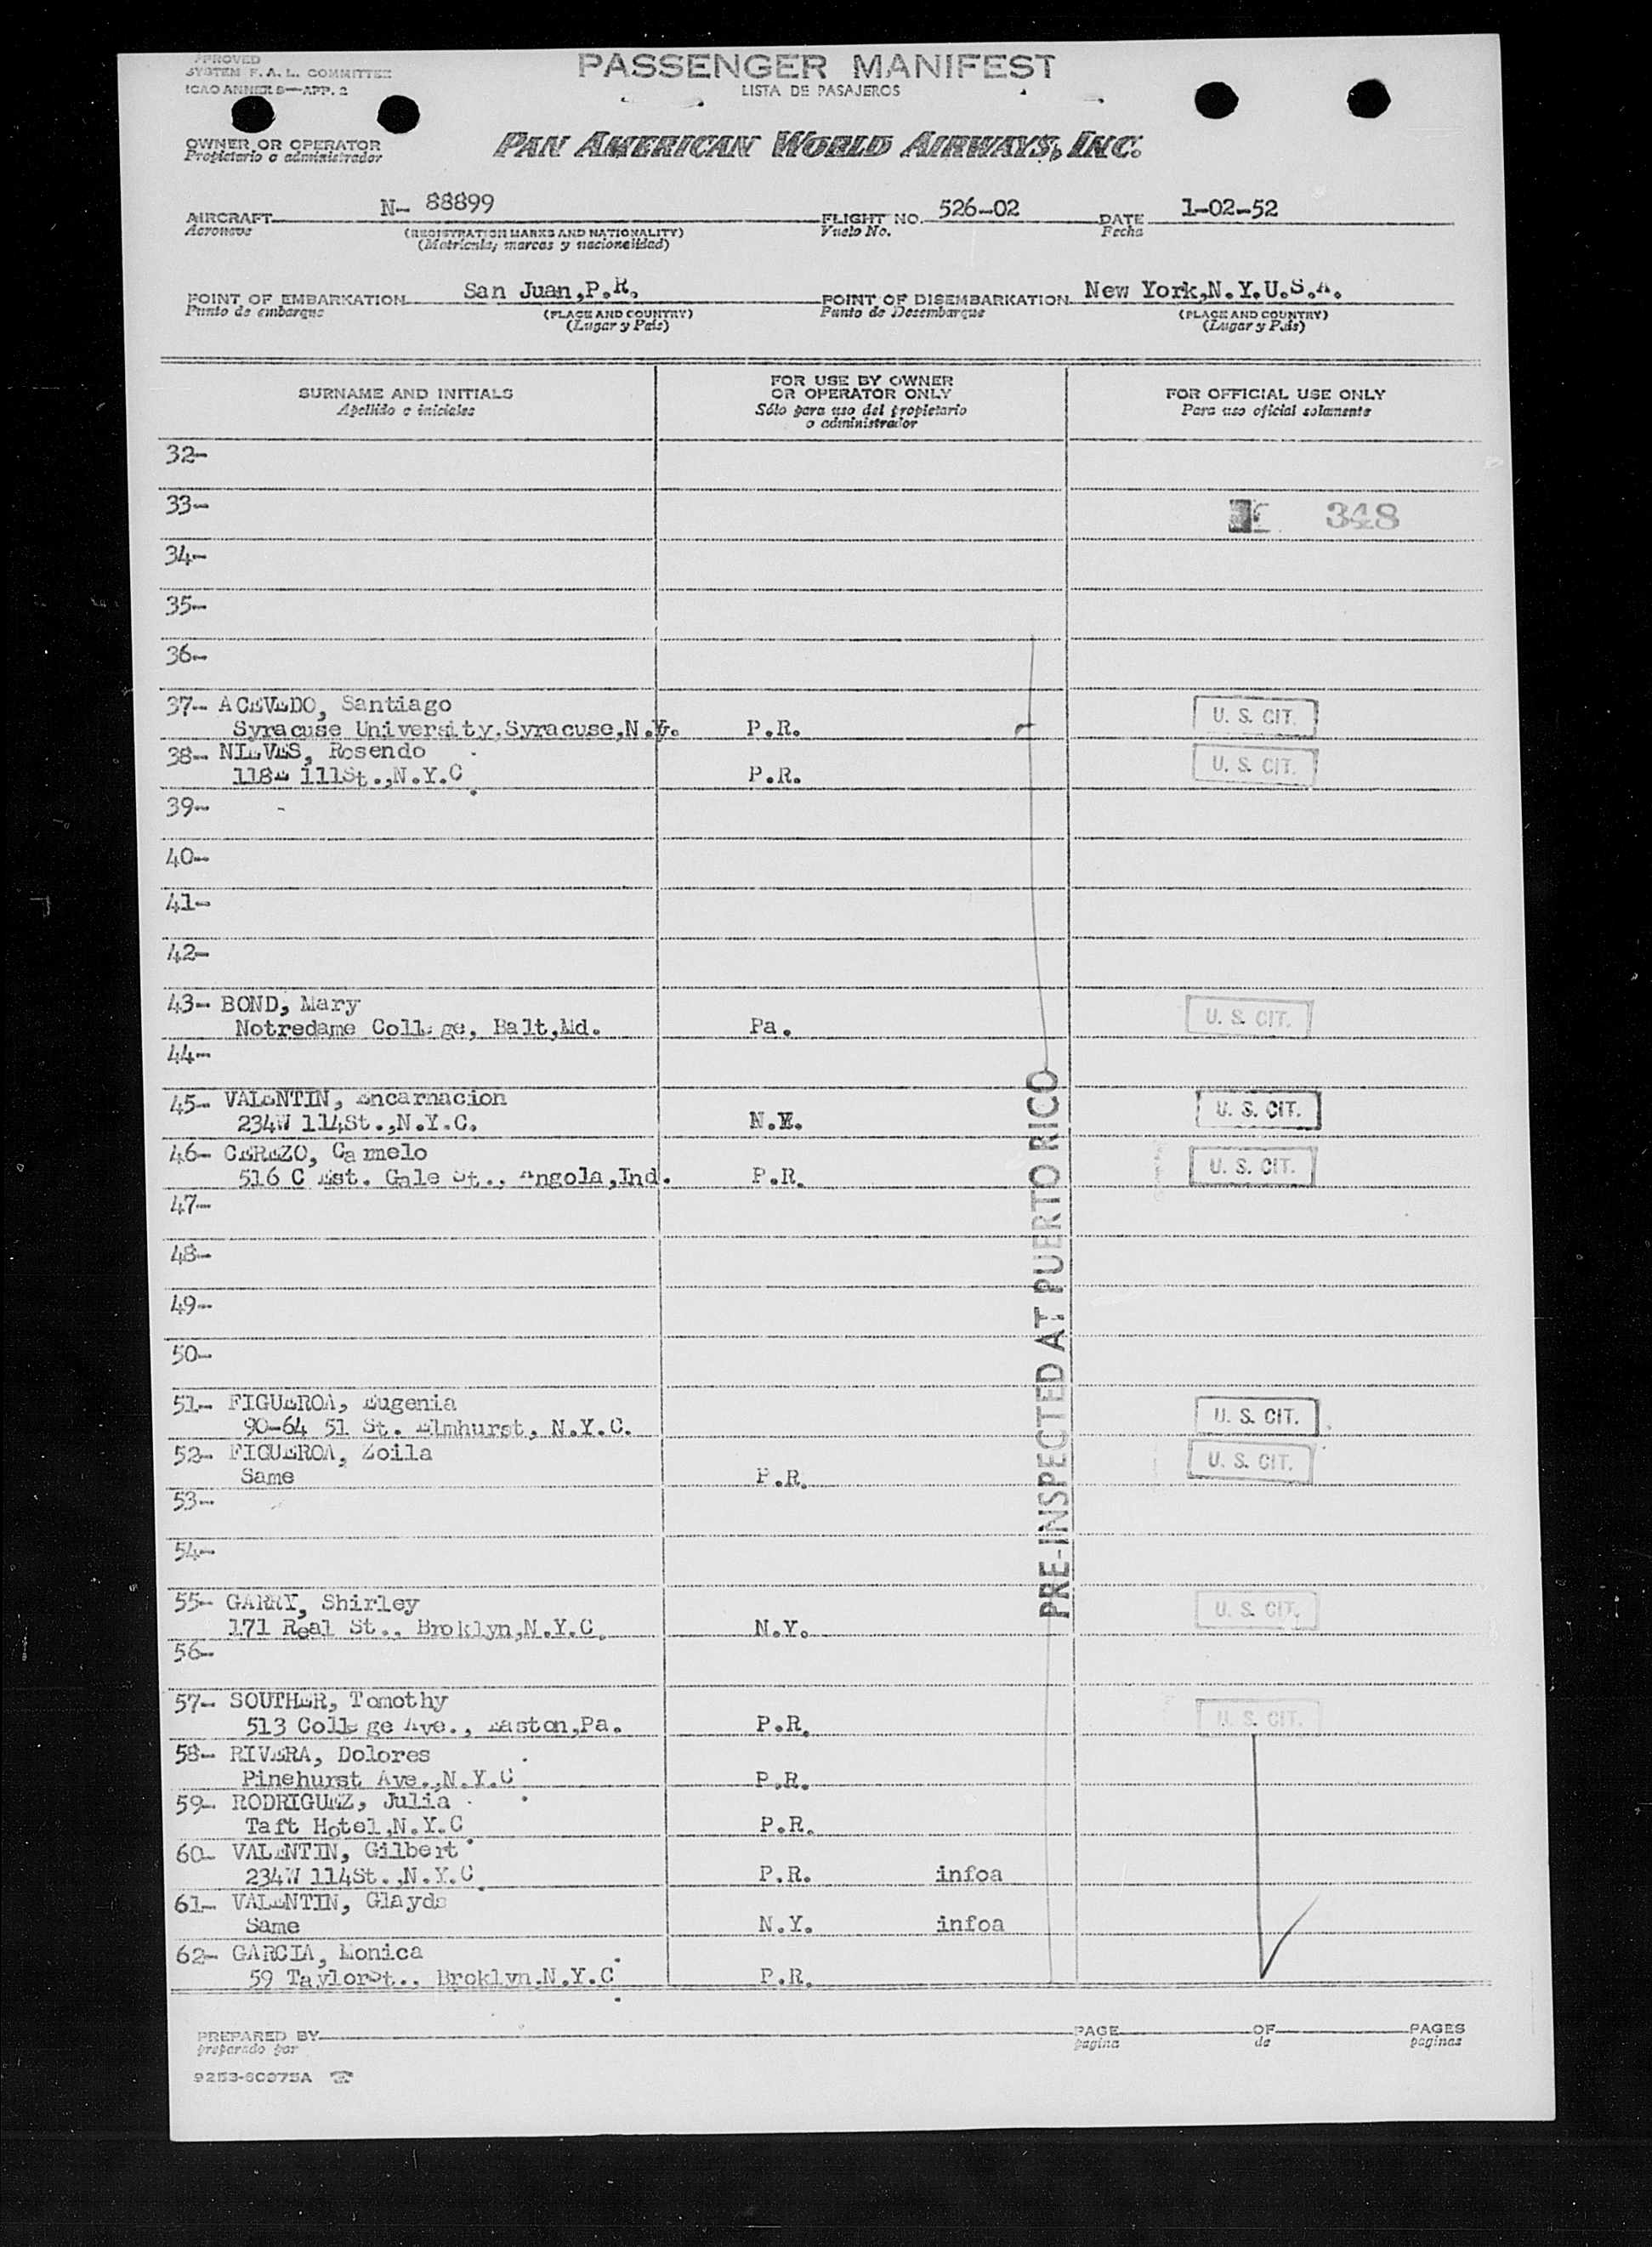 APPROVED
SYSTEM F. A. L. COMMITTEE
ICAO ANNEX 9—APP. 2
PASSENGER MANIFEST
LISTA DE PASAJEROS
OWNER OR OPERATOR
Propietario o administrador
PAN AMERICAN WORLD AIRWAYS, INC.
AIRCRAFT N- 88899 FLIGHT NO. 526-02 DATE 1-02-52
Aeronave (REGISTRATION MARKS AND NATIONALITY) Vuelo No. Fecha
(Matricula, marcas y nacionalidad)
POINT OF EMBARKATION San Juan,P.R. POINT OF DISEMBARKATION New York,N.Y.U.S.A.
Punto de embarque (PLACE AND COUNTRY) Punto de Desembarque (PLACE AND COUNTRY)
(Lugar y País) (Lugar y País)
SURNAME AND INITIALS FOR USE BY OWNER OR OPERATOR ONLY FOR OFFICIAL USE ONLY
Apellido o iniciales Sólo para uso del propietario o administrador Para uso oficial solamente
32-
33- 348
34-
35-
36-
37- ACEVEDO, Santiago U. S. CIT.
Syracuse University,Syracuse,N.Y. P.R.
38- NIEVES, Rosendo U. S. CIT.
118E 111St.,N.Y.C. P.R.
39-
40-
41-
42-
43- BOND, Mary U. S. CIT.
Notredame College, Balt,Md. Pa.
44-
45- VALENTIN, Encarnacion U. S. CIT.
234W 114St.,N.Y.C. N.Y.
46- CEREZO, Carmelo U. S. CIT.
516 C Est. Gale St., Angola,Ind. P.R.
47-
48-
49-
50-
51- FIGUEROA, Eugenia U. S. CIT.
90-64 51 St. Elmhurst, N.Y.C.
52- FIGUEROA, Zoila U. S. CIT.
Same P.R.
53-
54-
55- GARRY, Shirley U. S. CIT.
171 Real St., Broklyn,N.Y.C. N.Y.
56-
57- SOUTHER, Tomothy U. S. CIT.
513 College Ave., Easton,Pa. P.R.
58- RIVERA, Dolores
Pinehurst Ave.,N.Y.C. P.R.
59- RODRIGUEZ, Julia
Taft Hotel,N.Y.C. P.R.
60- VALENTIN, Gilbert
234W 114St.,N.Y.C. P.R. infoa
61- VALENTIN, Glayds
Same N.Y. infoa
62- GARCIA, Monica
59 TaylorSt., Broklyn,N.Y.C. P.R.
PRE-INSPECTED AT PUERTO RICO
PREPARED BY PAGE OF PAGES
preparado por pagina de paginas